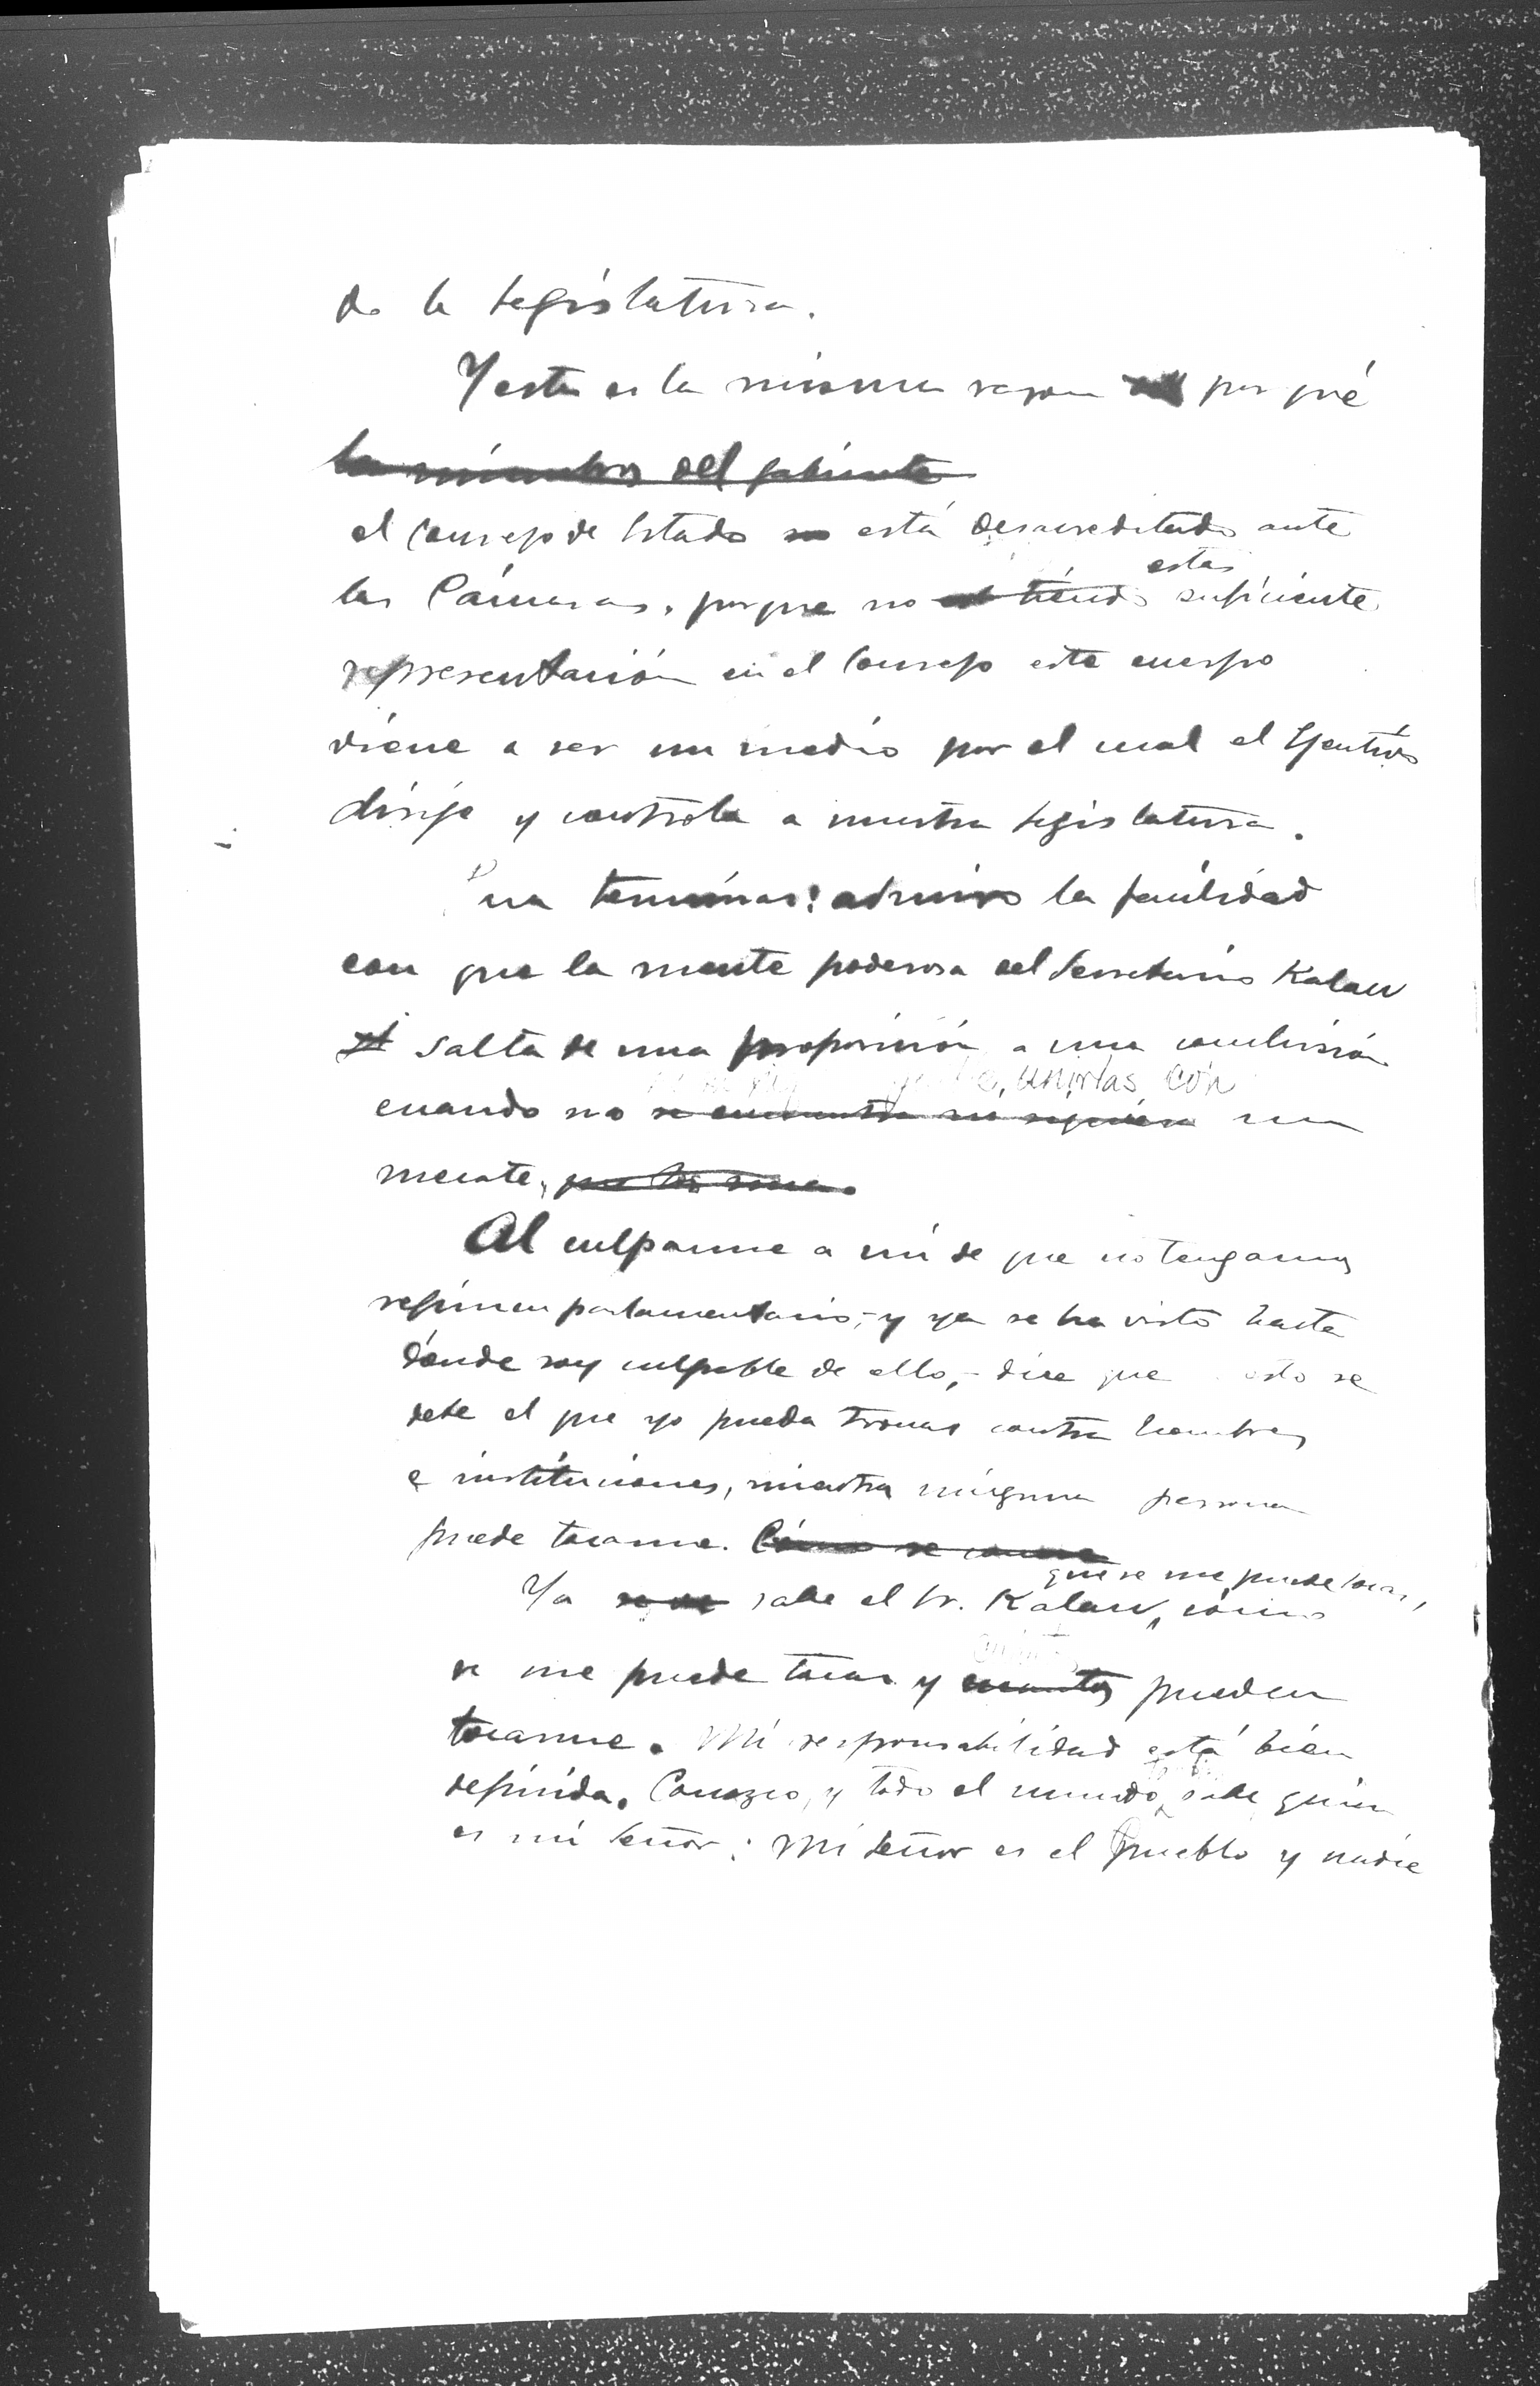 de la Legislatura.
Y esta es la misma razon por qué
los miembros del gabinete
el Consejo de Estado no está desacreditado ante
las Cámaras, porque no teniendo estas suficiente
representación en el Consejo este cuerpo
viene a ser un medio por el cual el Ejecutivo
dirije y controla a nuestra Legislatura.
Para terminar: admiro la facilidad
con que la mente poderosa del Secretario Kalaw
salta de una proposición a una conclusión
unirlas con
cuando no se encuentra ni siquiera un
mecate,
Al culparme a mí de que no tengamos
regimen parlamentario,- y ya se ha visto hasta
dónde soy culpable de ello,- dice que esto se
debe el que yo pueda tronar contra hombres
e instituciones, mientra ninguna persona
puede tocarme. Cómo se conoce
que se me puede tocar,
Ya se ve sabe el Sr. Kalaw, cómo
se me puede tocar y cuantos pueden
tocarme. Mi responsabilidad está bien
definida. Conozco, y todo el mundo sabe quien
es mi Señor: Mi Señor es el pueblo y nadie